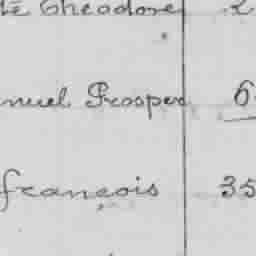 te Theodore 2
nuel Prosper 6
françois 35